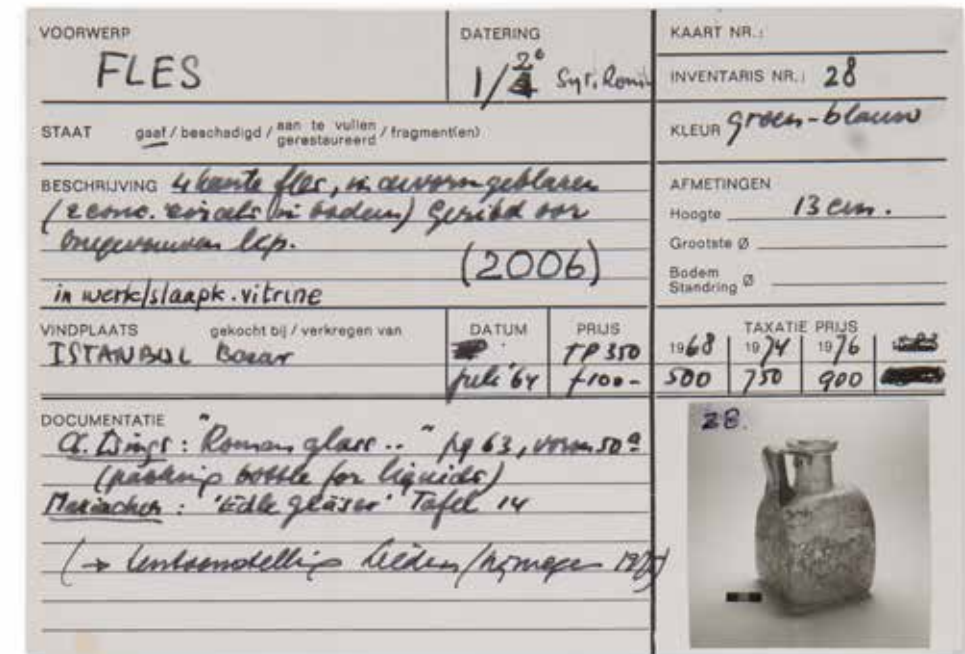 VOORWERP
FLES
DATERING
1/2e Syr. Rom.
KAART NR.:
INVENTARIS NR.: 28
KLEUR groen-blauw
STAAT gaaf / beschadigd / aan te vullen / gerestaureerd / fragment(en)
BESCHRIJVING 4 kante fles, in geblazen
(2 conc. cirkels in bodem) Geribd oor
lip.
(2006)
in werk/slaapk. vitrine
AFMETINGEN
Hoogte 13 cm.
Grootste Ø
Bodem Standring Ø
VINDPLAATS gekocht bij / verkregen van
ISTANBUL Bazar
DATUM
juli '64
PRIJS
TP 350
f 100-
TAXATIE PRIJS
1968 1974 1976
500 750 900
DOCUMENTATIE
Cl. Isings: "Roman glass .." pg 63, vorm 50a
(packing bottle for liquids)
Mariacher: 'Edle gläser' Tafel 14
(→ tentoonstelling Leiden/Nijmegen
28.